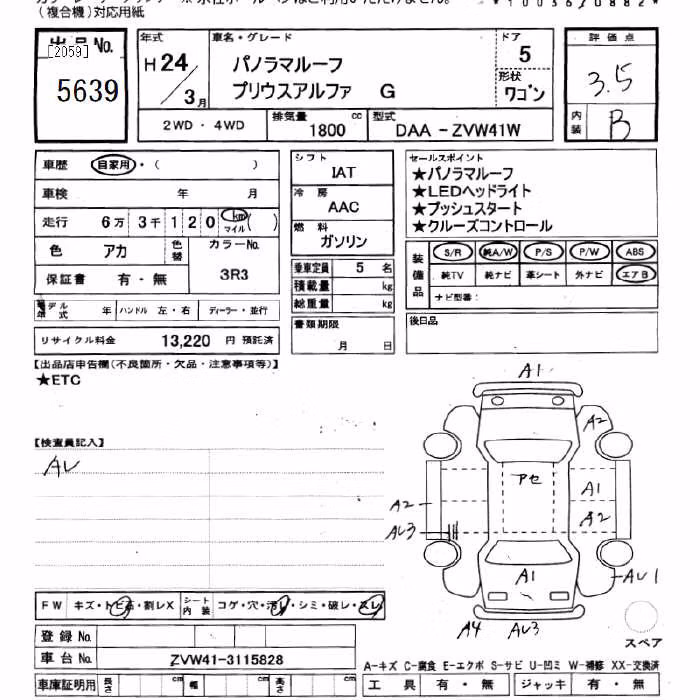 (複合機)対応用紙
*100367088 2*
出品No.
[2059]
5639
年式
H24/3月
車名・グレード
パノラマルーフ
プリウスアルファ G
ドア
5
形状
ワゴン
評価点
3.5
内装
B
2WD・4WD
排気量
1800 cc
型式
DAA-ZVW41W
車歴
自家用・( )
車検 年 月
走行 6万 3千 1 2 0 km マイル ( )
色 アカ
色替
カラーNo.
3R3
保証書 有・無
モデル年式 年
ハンドル 左・右
ディーラー・並行
リサイクル料金 13,220 円 預託済
シフト
IAT
冷房
AAC
燃料
ガソリン
乗車定員 5 名
積載量 kg
総重量 kg
書類期限
月 日
セールスポイント
★パノラマルーフ
★LEDヘッドライト
★プッシュスタート
★クルーズコントロール
装備品
S/R 純A/W P/S P/W ABS
純TV 純ナビ 革シート 外ナビ エアB
ナビ型番:
後日品
【出品店申告欄(不良箇所・欠品・注意事項等)】
★ETC
【検査員記入】
AU
A1
A2
アセ
A1
A2
A2
AU3
A1
AU1
A4
AU3
スペア
FW キズ・トビ石・割レX
シート内装 コゲ・穴・汚レ・シミ・破レ・スレ
登録No.
車台No. ZVW41-3115828
車庫証明用 長さ cm 幅 cm 高さ cm
A-キズ C-腐食 E-エクボ S-サビ U-凹ミ W-補修 XX-交換済
工具 有・無 ジャッキ 有・無